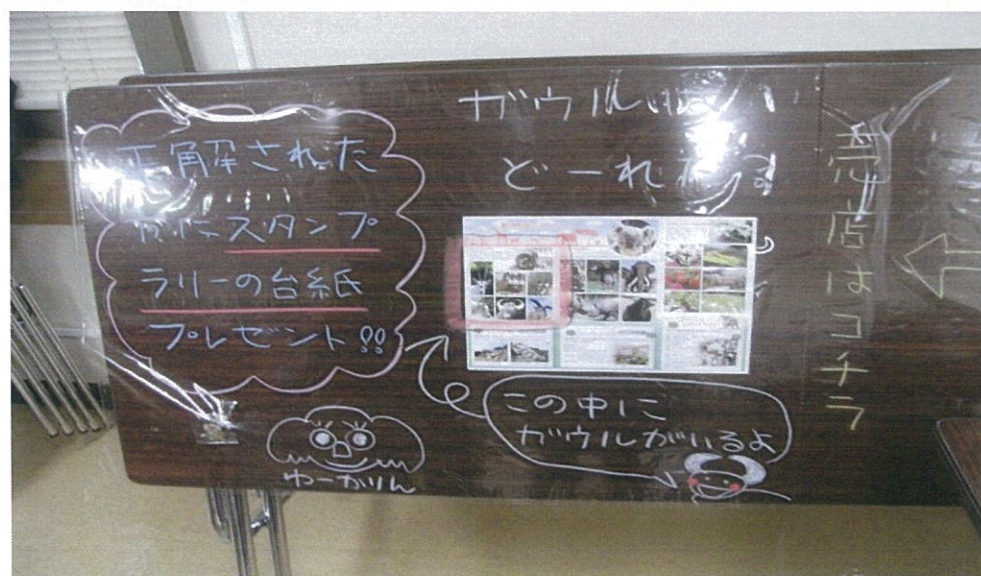 正解された
方にスタンプ
ラリーの台紙
プレゼント!!
ゆーかりん
ガウルはい
どーれだ
この中に
ガウルがいるよ
売店はコチラ